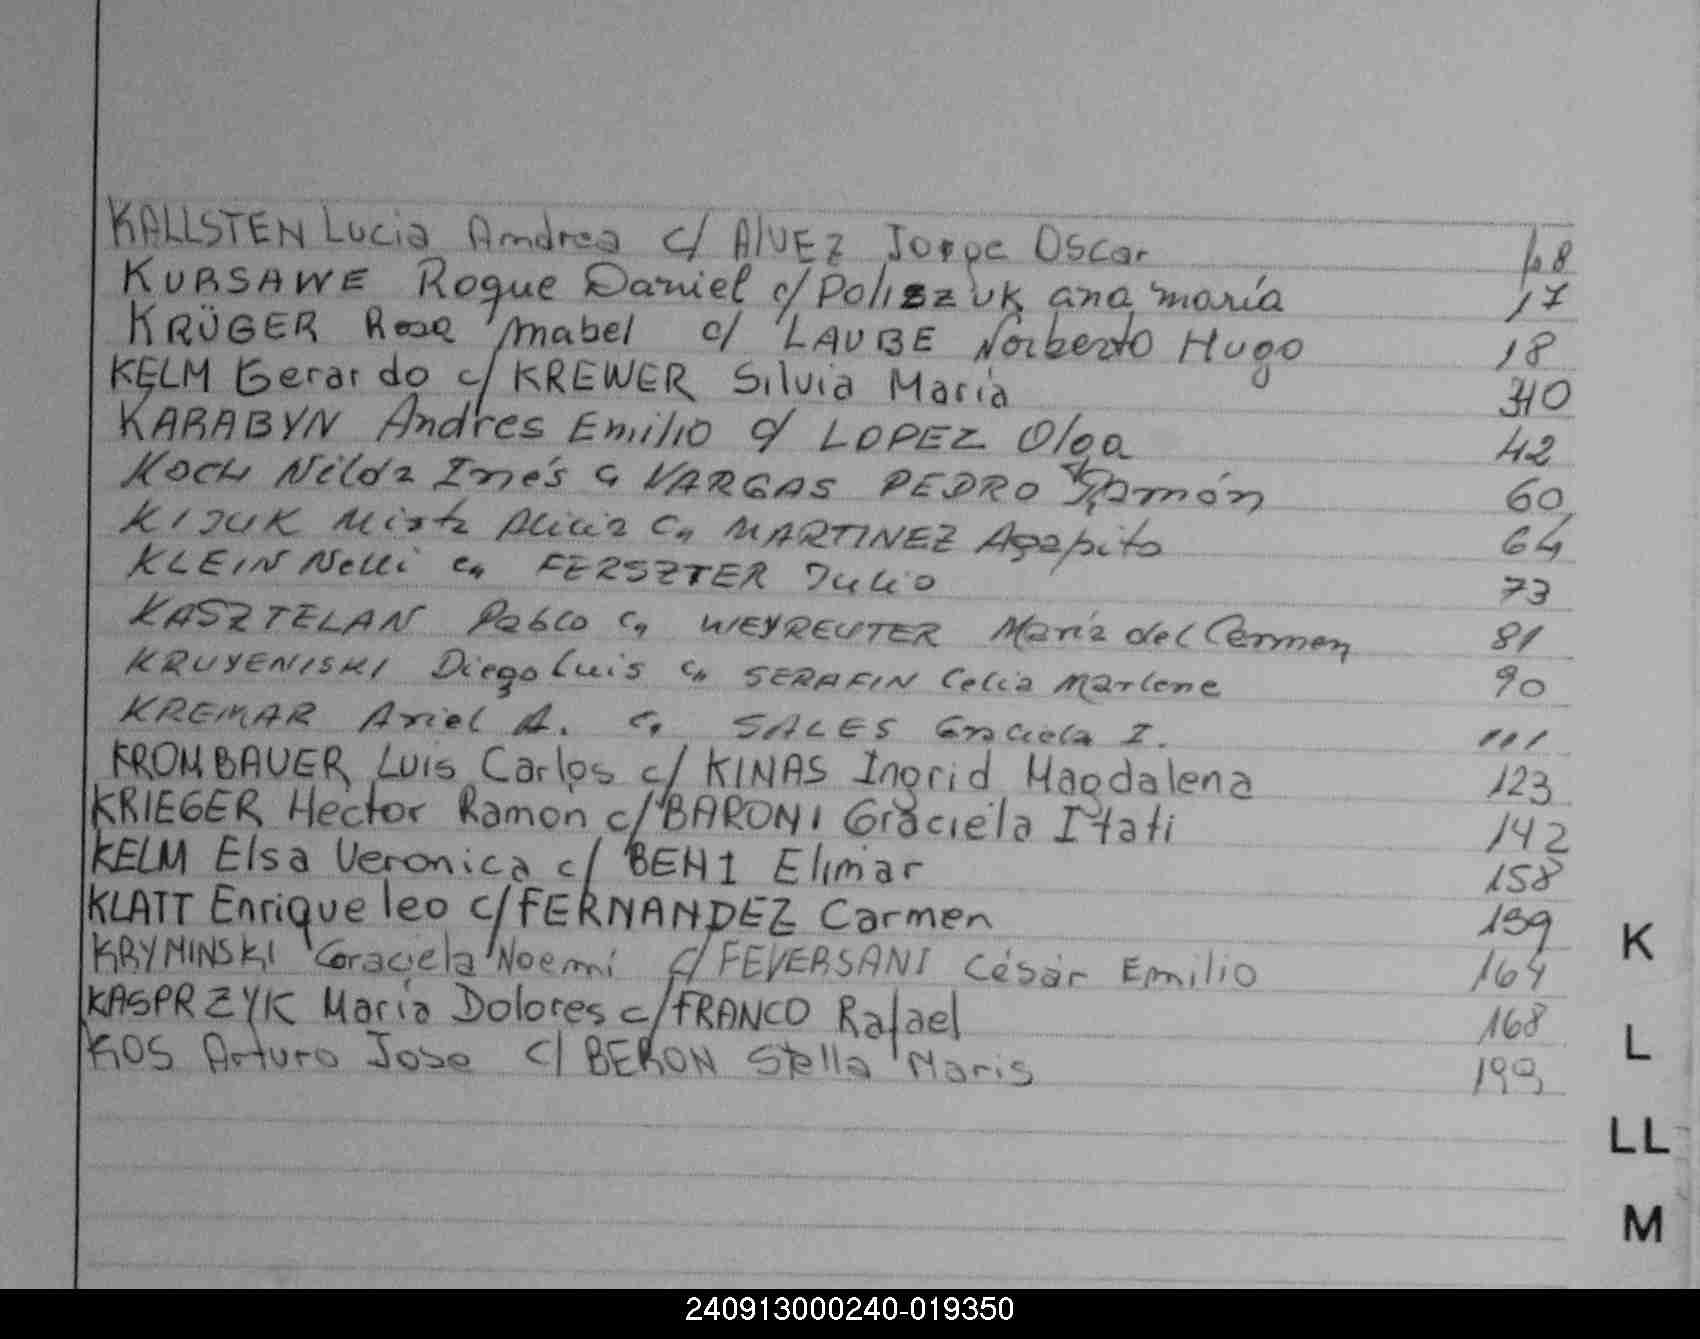 KALLSTEN Lucia Andrea c/ AlVEZ Jorge Oscar fo 8
KURSAWE Roque Daniel c/ Poliszuk ana maría 17
KRÜGER Rosa Mabel c/ LAUBE Norberto Hugo 18
KELM Gerardo c/ KREWER Silvia Maria
KARABYN Andres Emilio c/ LOPEZ Olga 42
KOCH Nilda Inés c/ VARGAS PEDRO Ramón 60
KIJUK Mirta Alicia Cn MARTINEZ Agapito 64
KLEIN Nelli cn FERSZTER Julio 73
KASZTELAN Pablo Cn WEYREUTER María del Carmen 81
KRUYENISKI Diego Luis cn SERAFIN Celia Marlene 90
KREMAR Ariel A. cn SALES Graciela I. 111
KROMBAUER Luis Carlos c/ KINAS Ingrid Magdalena 123
KRIEGER Hector Ramon c/ BARONI Graciela Itati 142
KELM Elsa Veronica c/ BEHI Elimar 158
KLATT Enrique leo c/ FERNANDEZ Carmen 159
KRYMINSKI Graciela Noemi c/ FEVERSANI César Emilio 164
KASPRZYK María Dolores c/ FRANCO Rafael 168
KOS Arturo Jose c/ BERON Stella Maris 199
K
L
LL
M
240913000240-019350